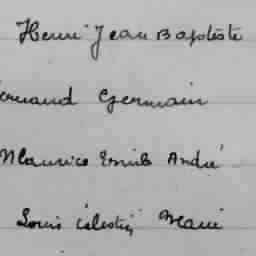 Henri Jean Baptiste
ernand Germain
Maurice Emile André
Louis Célestin Marie